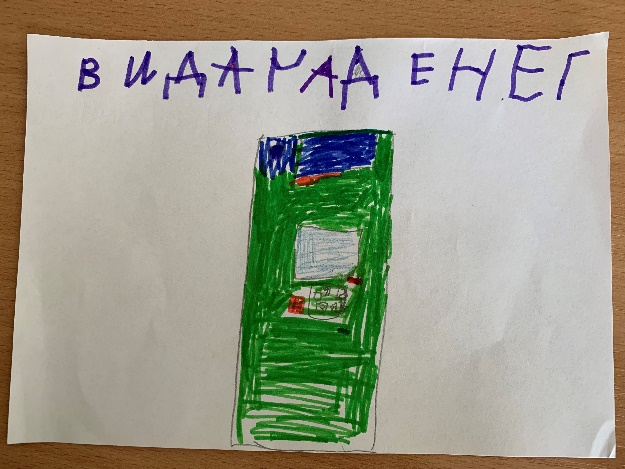 ВИДАЧАД ЕНЕГ